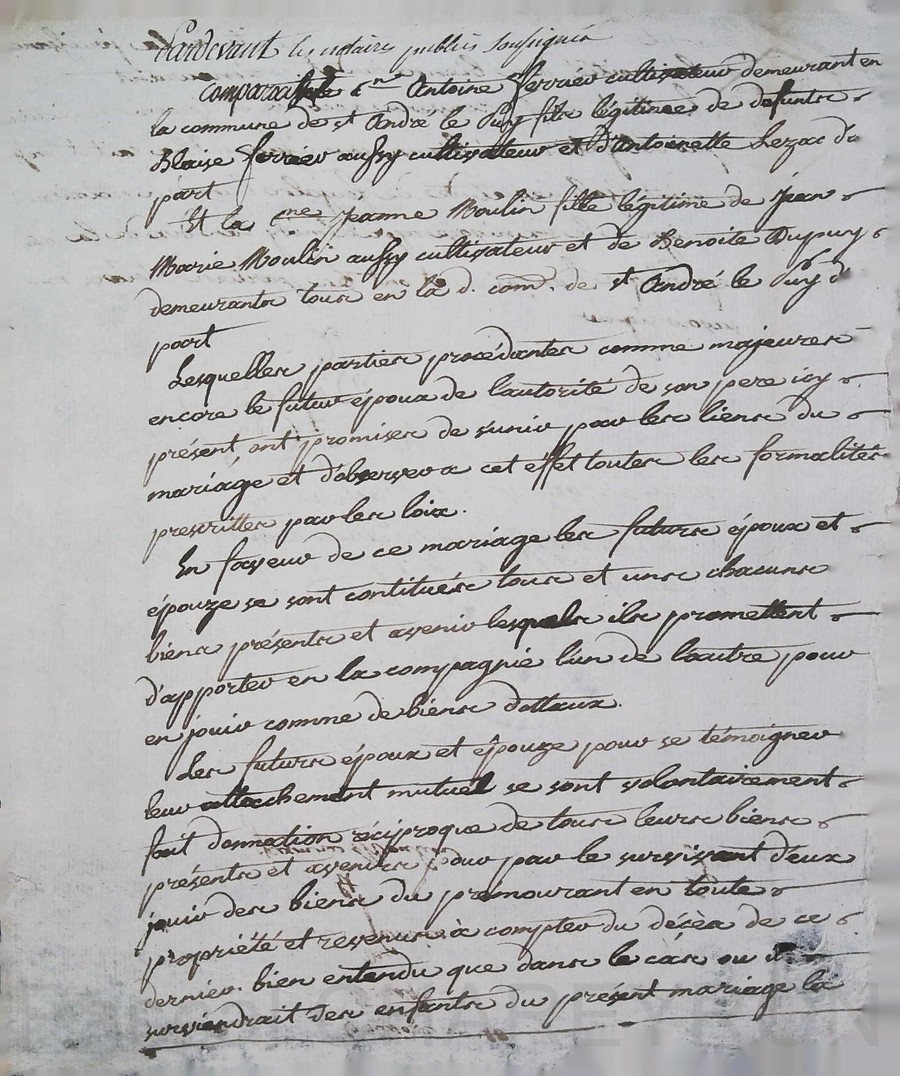 Pardevant les notaires publics soussignés
comparaissent c.en Antoine ferrier cultivateur demeurant en
la commune de st André le Puy fils légitime de defunts
Blaise ferrier aussy cultivateur et d'Antoinette Lezac du
part
Et la c.ne Jeanne Moulin fille légitime de Jean
Marie Moulin aussy cultivateur et de Benoite Dupuy
demeurants tous en la d. com.e de st André le Puy d
part
Lesquelles parties procédantes comme majeures
encore le futur époux de l'autorité de son pere icy
présent, ont promises de s'unir par les liens du
mariage et d'observer a cet effet toutes les formalités
prescrittes par les loix.
En faveur de ce mariage les futurs époux et
épouze se sont contitués tous et uns chacuns
biens présents et avenir lesquels ils promettent
d'apporter en la compagnie l'un de l'autre pour
en jouir comme de biens dottaux.
Les futurs époux et épouze pour se témoigner
leur attachement mutuel se sont volontairement
fait donnation réciproque de tous leurs biens
présents et avenirs pour par le survivant d'eux
jouir des biens du premourant en toute
propriété et revenus à compter du décès de ce
dernier. bien entendu que dans le cas ou il
surviendrait des enfants du présent mariage la